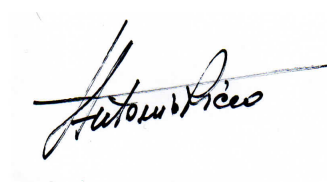 Antonio Ricco